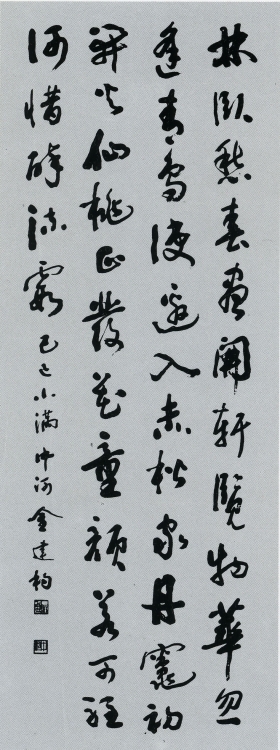 林臥愁春盡開軒覽物華忽
逢青鳥使邀入赤松家丹竈初
開火仙桃正發花童顏若可駐
何惜醉流霞 己巳小滿 河金